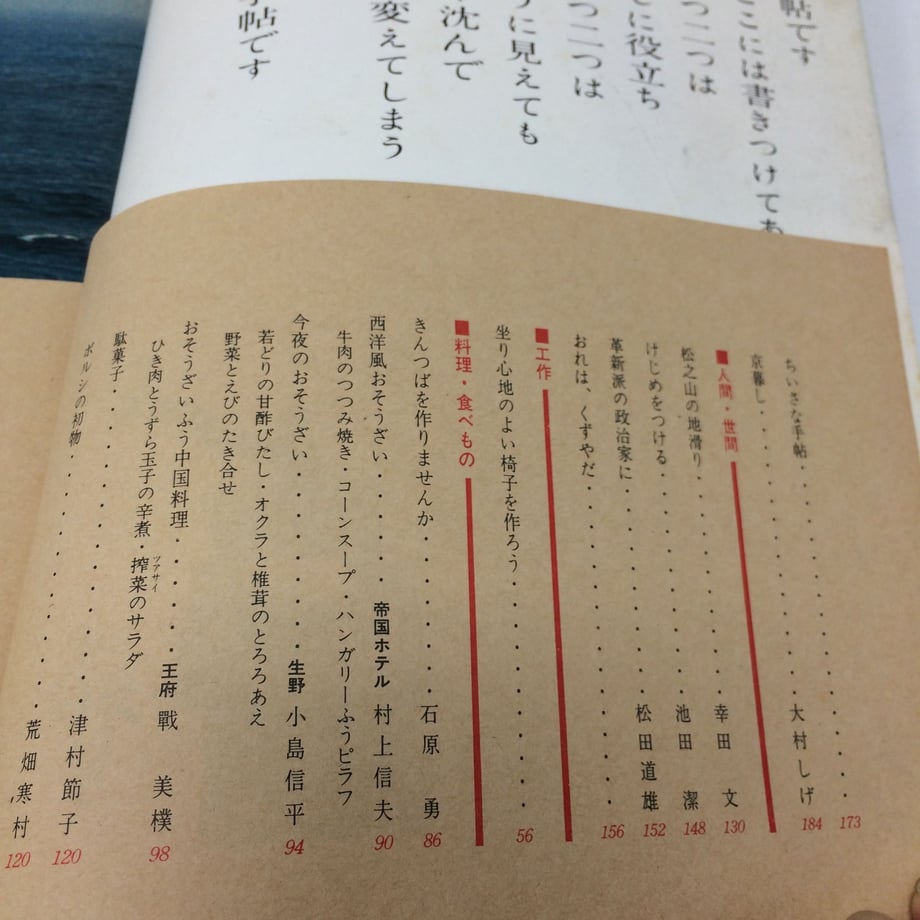 帖です
ここには書きつけてあ
つ二つは
に役立ち
つ二つは
に見えても
沈んで
変えてしまう
手帖です
ちいさな手帖・・・・・・・・・・・・・・・173
京暮し・・・・・・・・・・・大村しげ 184
■人間・世間
松之山の地滑り・・・・・・・・幸田 文 130
けじめをつける・・・・・・・・池田 潔 148
革新派の政治家に・・・・・・・松田道雄 152
おれは、くずやだ・・・・・・・・・・・・・156
■工作
坐り心地のよい椅子を作ろう・・・・・・・・56
■料理・食べもの
きんつばを作りませんか・・・・・・石原 勇 86
西洋風おそうざい・・・・・帝国ホテル 村上信夫 90
牛肉のつつみ焼き・コーンスープ・ハンガリーふうピラフ
今夜のおそうざい・・・・・・・生野 小島信平 94
若どりの甘酢びたし・オクラと椎茸のとろろあえ
野菜とえびのたき合せ
おそうざいふう中国料理・・・・・王府 戰 美樸 98
ひき肉とうずら玉子の辛煮・搾菜のサラダ
ツアサイ
駄菓子・・・・・・・・・・・・津村節子 120
ボルシの初物・・・・・・・・・・荒畑寒村 120